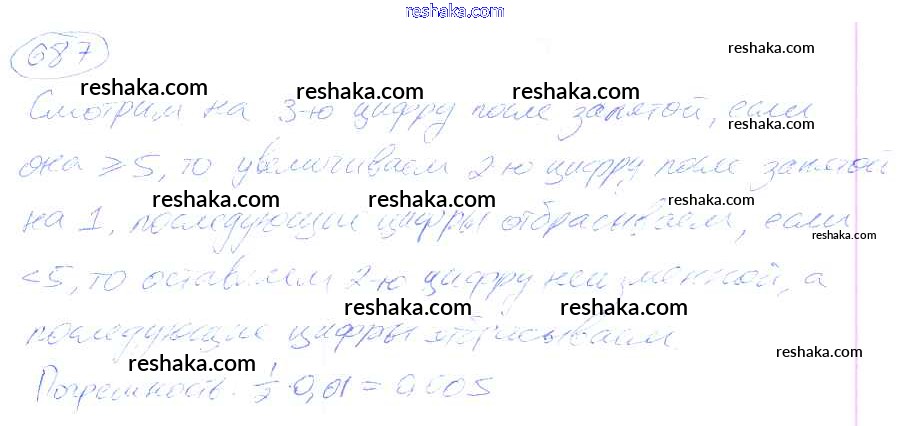 reshaka.com
687
reshaka.com
reshaka.com reshaka.com reshaka.com
Смотрим на 3-ю цифру после запятой, если
reshaka.com
она ≥5, то увеличиваем 2-ю цифру после запятой
reshaka.com reshaka.com reshaka.com
на 1, последующие цифры отбрасываем, если
reshaka.com
<5, то оставляем 2-ю цифру неизменной, а
reshaka.com reshaka.com
последующие цифры отбрасываем.
reshaka.com reshaka.com
Погрешность: 1/2 · 0,01 = 0,005